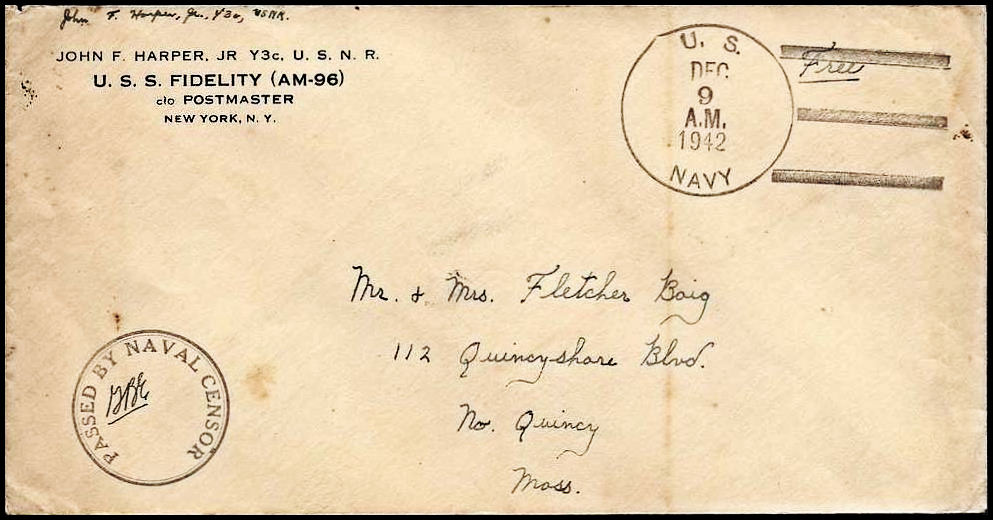 John F. Harper, Jr., Y3c, USNR.
JOHN F. HARPER, JR Y3c, U. S. N. R.
U. S. S. FIDELITY (AM-96)
c/o POSTMASTER
NEW YORK, N. Y.
U. S.
DEC
9
A.M.
1942
NAVY
Free
Mr. & Mrs. Fletcher Boig
112 Quincy-shore Blvd.
No. Quincy
Mass.
PASSED BY NAVAL CENSOR